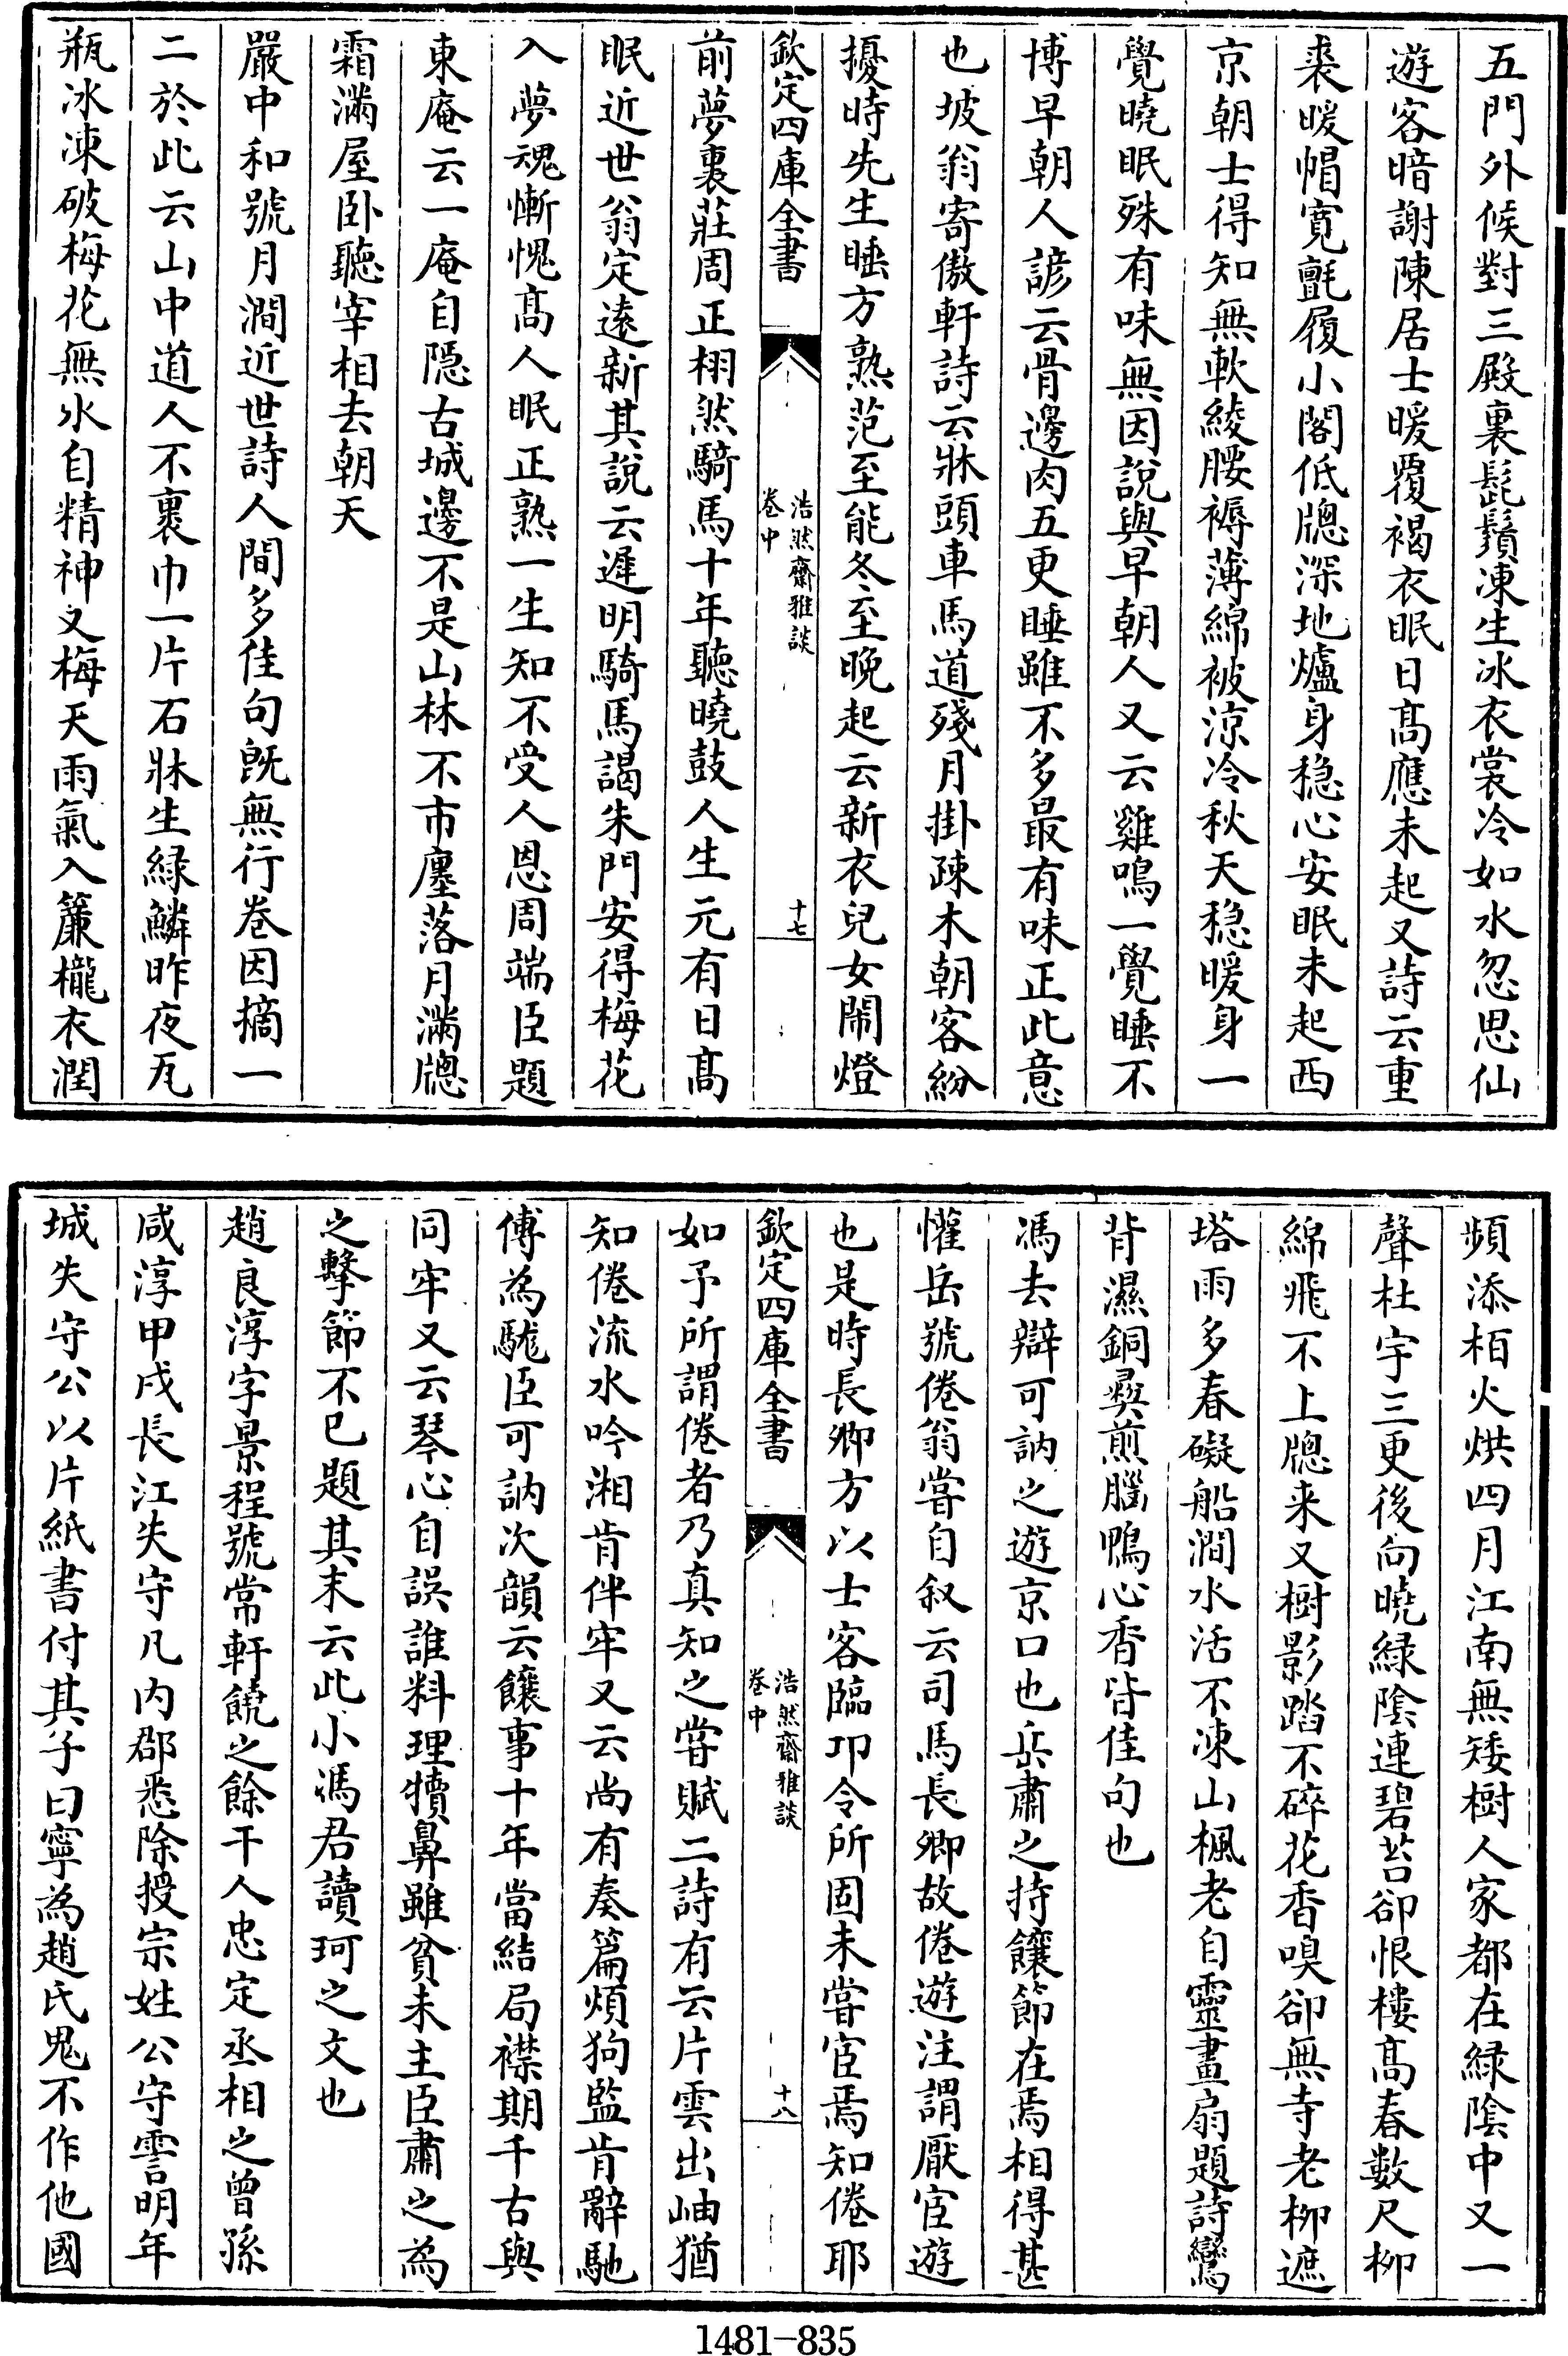 五門外候對三殿裏髭鬚凍生冰衣裳冷如水忽思仙
遊客暗謝陳居士暖覆褐衣眠日髙應未起又詩云重
裘暖帽寛氊履小閣低牕深地爐身穏心安眠未起西
京朝士得知無軟綾腰褥薄綿被涼冷秋天穏暖身一
覺曉眠殊有味無因說與早朝人又云雞鳴一覺睡不
博早朝人諺云骨邊肉五更睡雖不多最有味正此意
也坡翁寄傲軒詩云牀頭車馬道殘月掛疎木朝客紛
擾時先生睡方熟范至能冬至晚起云新衣兒女鬧燈
欽定四庫全書
浩然齋雅談
卷中
十七
前夢裏莊周正栩然騎馬十年聽曉鼓人生元有日髙
眠近世翁定逺新其說云遲明騎馬謁朱門安得梅花
入夢魂慚愧髙人眠正熟一生知不受人恩周端臣題
東庵云一庵自隠古城邊不是山林不市廛落月滿牕
霜滿屋卧聽宰相去朝天
嚴中和號月澗近世詩人間多佳句旣無行巻因摘一
二於此云山中道人不裹巾一片石牀生緑鱗昨夜瓦
瓶冰凍破梅花無水自精神又梅天雨氣入簾櫳衣潤
頻添栢火烘四月江南無矮樹人家都在緑隂中又一
聲杜宇三更後向曉緑隂連碧苔卻恨樓髙春數尺柳
綿飛不上牕来又樹影踏不碎花香嗅卻無寺老柳遮
塔雨多春礙船澗水活不凍山楓老自靈畫扇題詩鸞
背濕銅彛煎腦鴨心香皆佳句也
馮去辯可訥之遊京口也岳肅之持饟節在焉相得甚
懽岳號倦翁嘗自叙云司馬長卿故倦遊注謂厭宦遊
也是時長卿方以士客臨卭令所固未嘗宦焉知倦耶
欽定四庫全書
浩然齋雅談
卷中
十八
如予所謂倦者乃真知之嘗賦二詩有云片雲出岫猶
知倦流水吟湘肯伴牢又云尚有奏篇煩狗監肯辭馳
傳為駹臣可訥次韻云饟事十年當結局襟期千古與
同牢又云琴心自誤誰料理犢鼻雖貧未主臣肅之為
之擊節不已題其末云此小馮君讀珂之文也
趙良淳字景程號常軒饒之餘干人忠定丞相之曾孫
咸淳甲戌長江失守凡内郡悉除授宗姓公守霅明年
城失守公以片紙書付其子曰寧為趙氏鬼不作他國
1481-835